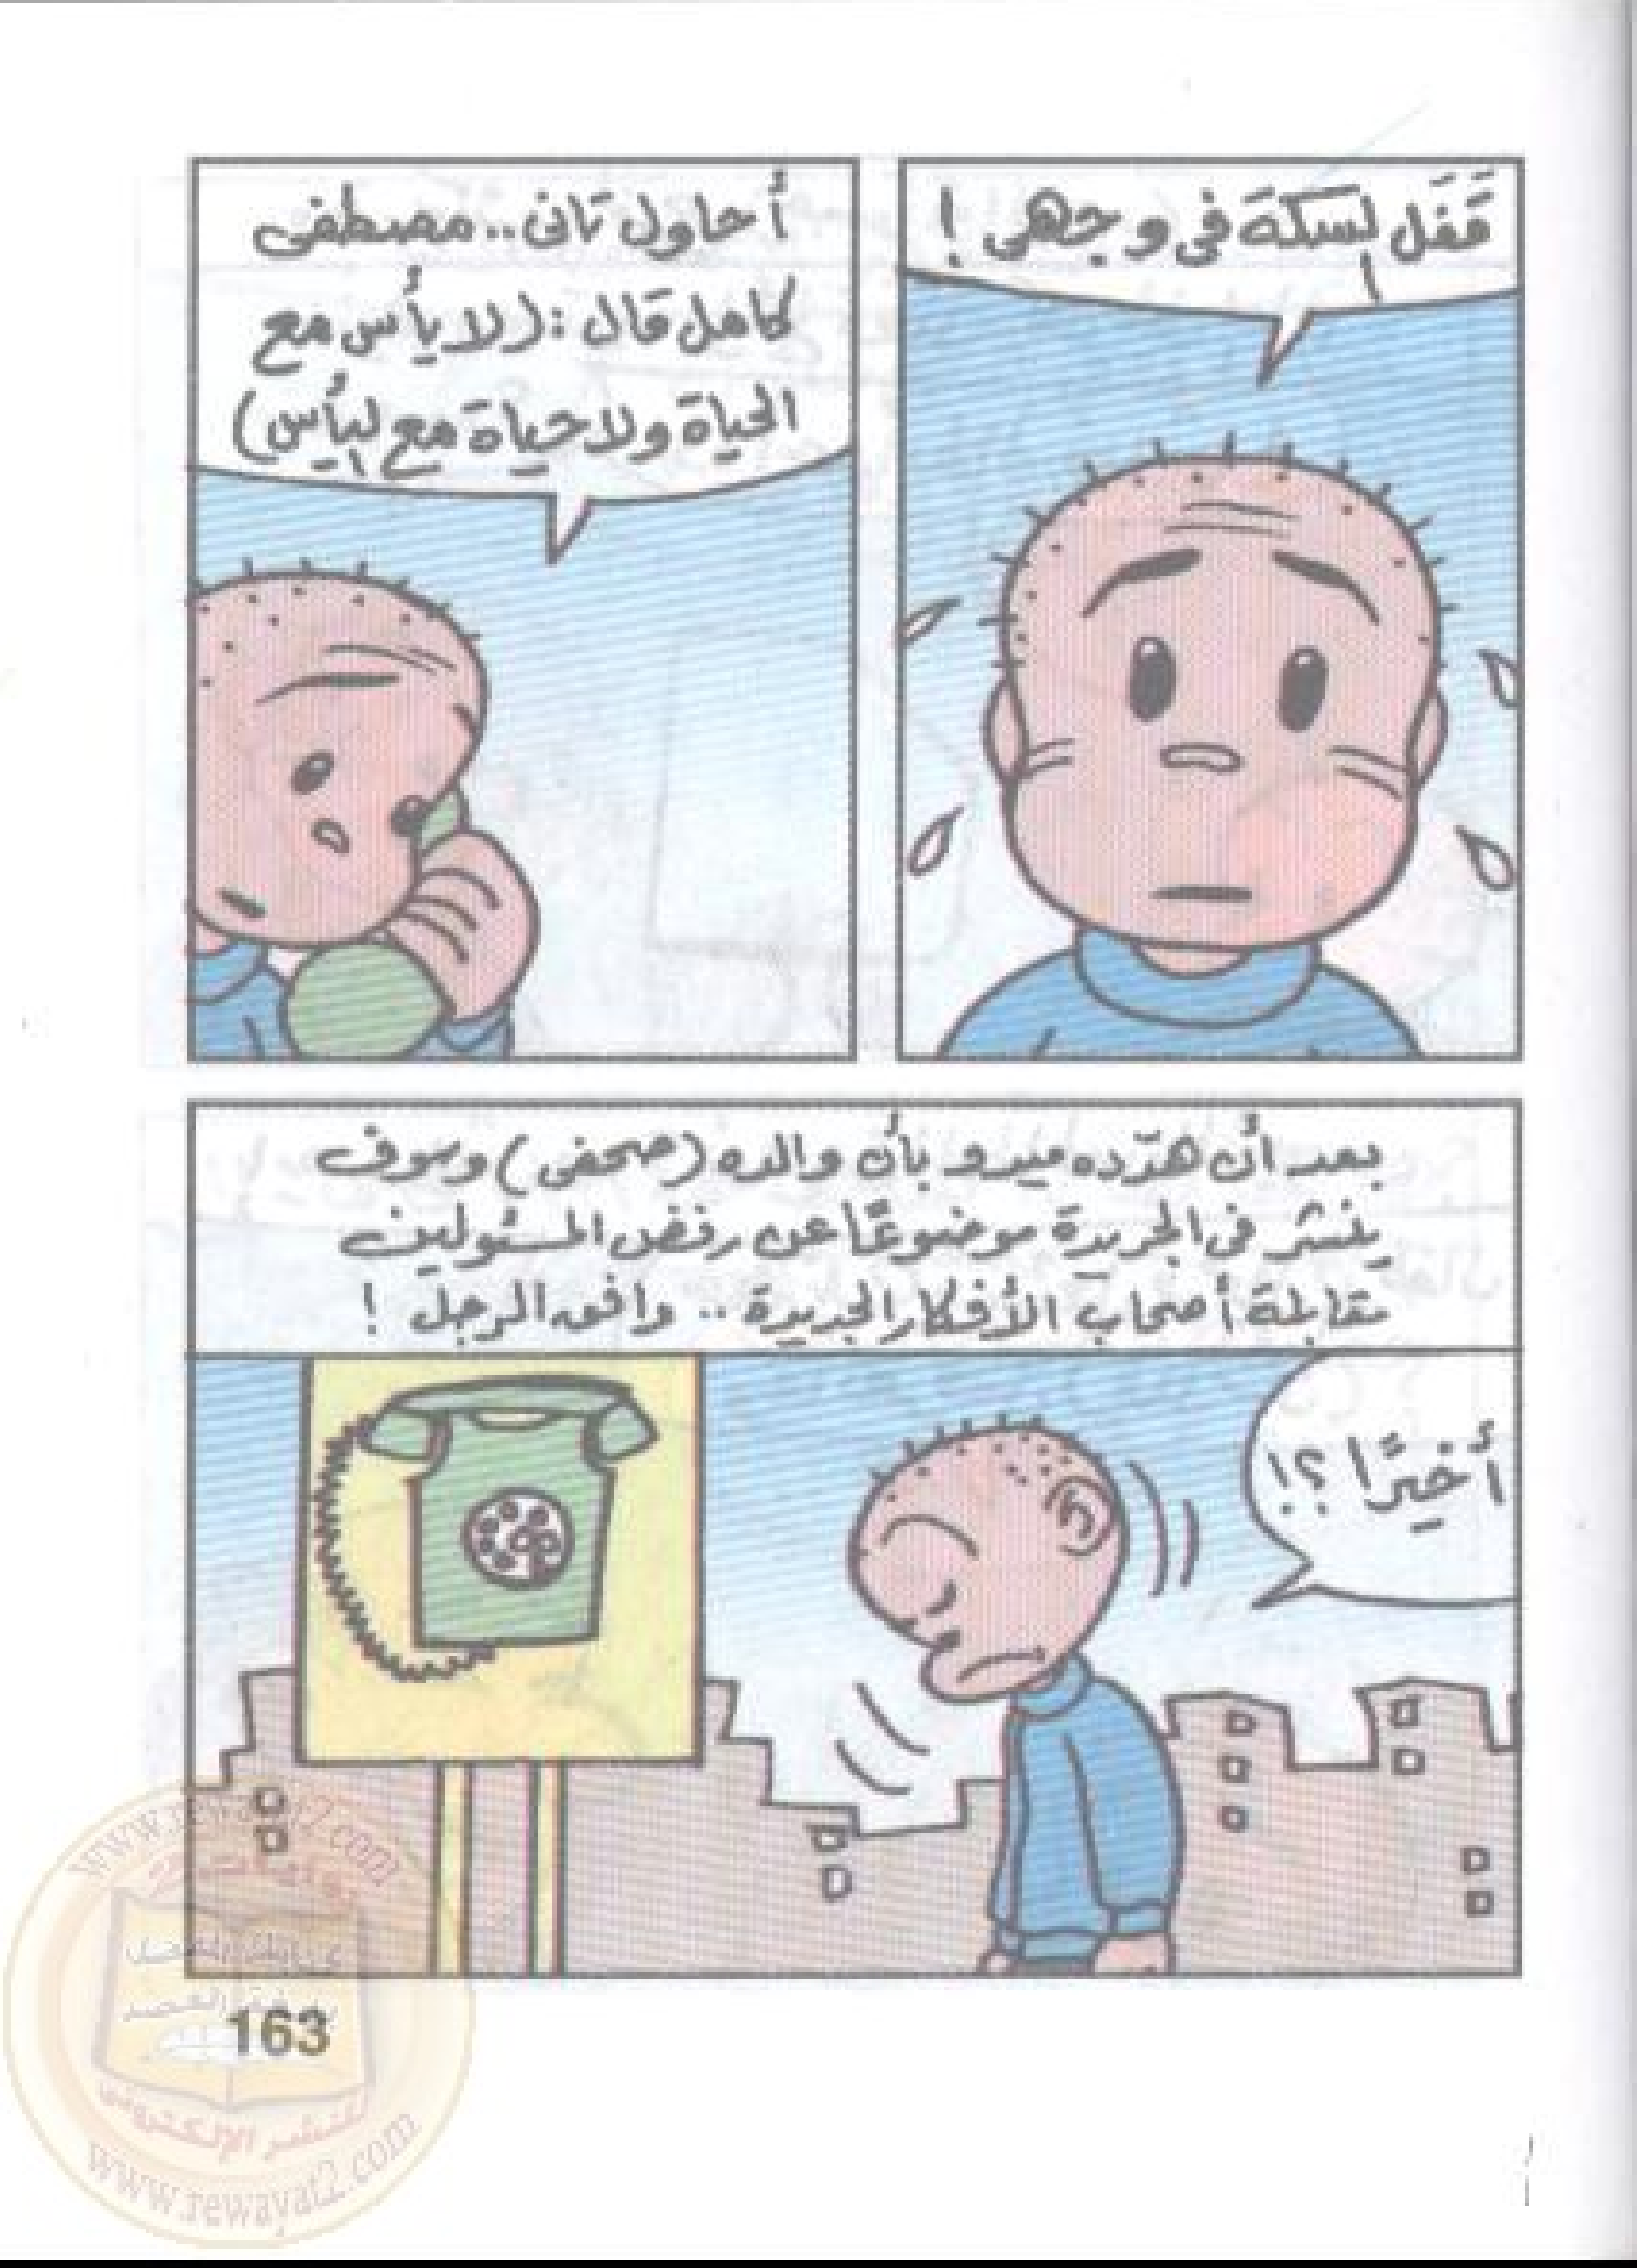 قَفَل السكة فى وجهى !
أحاول تانى .. مصطفى
كامل قال : (لا يأس مع
الحياة ولا حياة مع اليأس)
بعد أن هدّده ميدو بأن والده (صحفى) وسوف
ينشر فى الجريدة موضوعًا عن رفض المسئولين
مقابلة أصحاب الأفكار الجديدة .. وافق الرجل !
أخيرًا ؟!
www.rewayat2.com
163
www.rewayat2.com